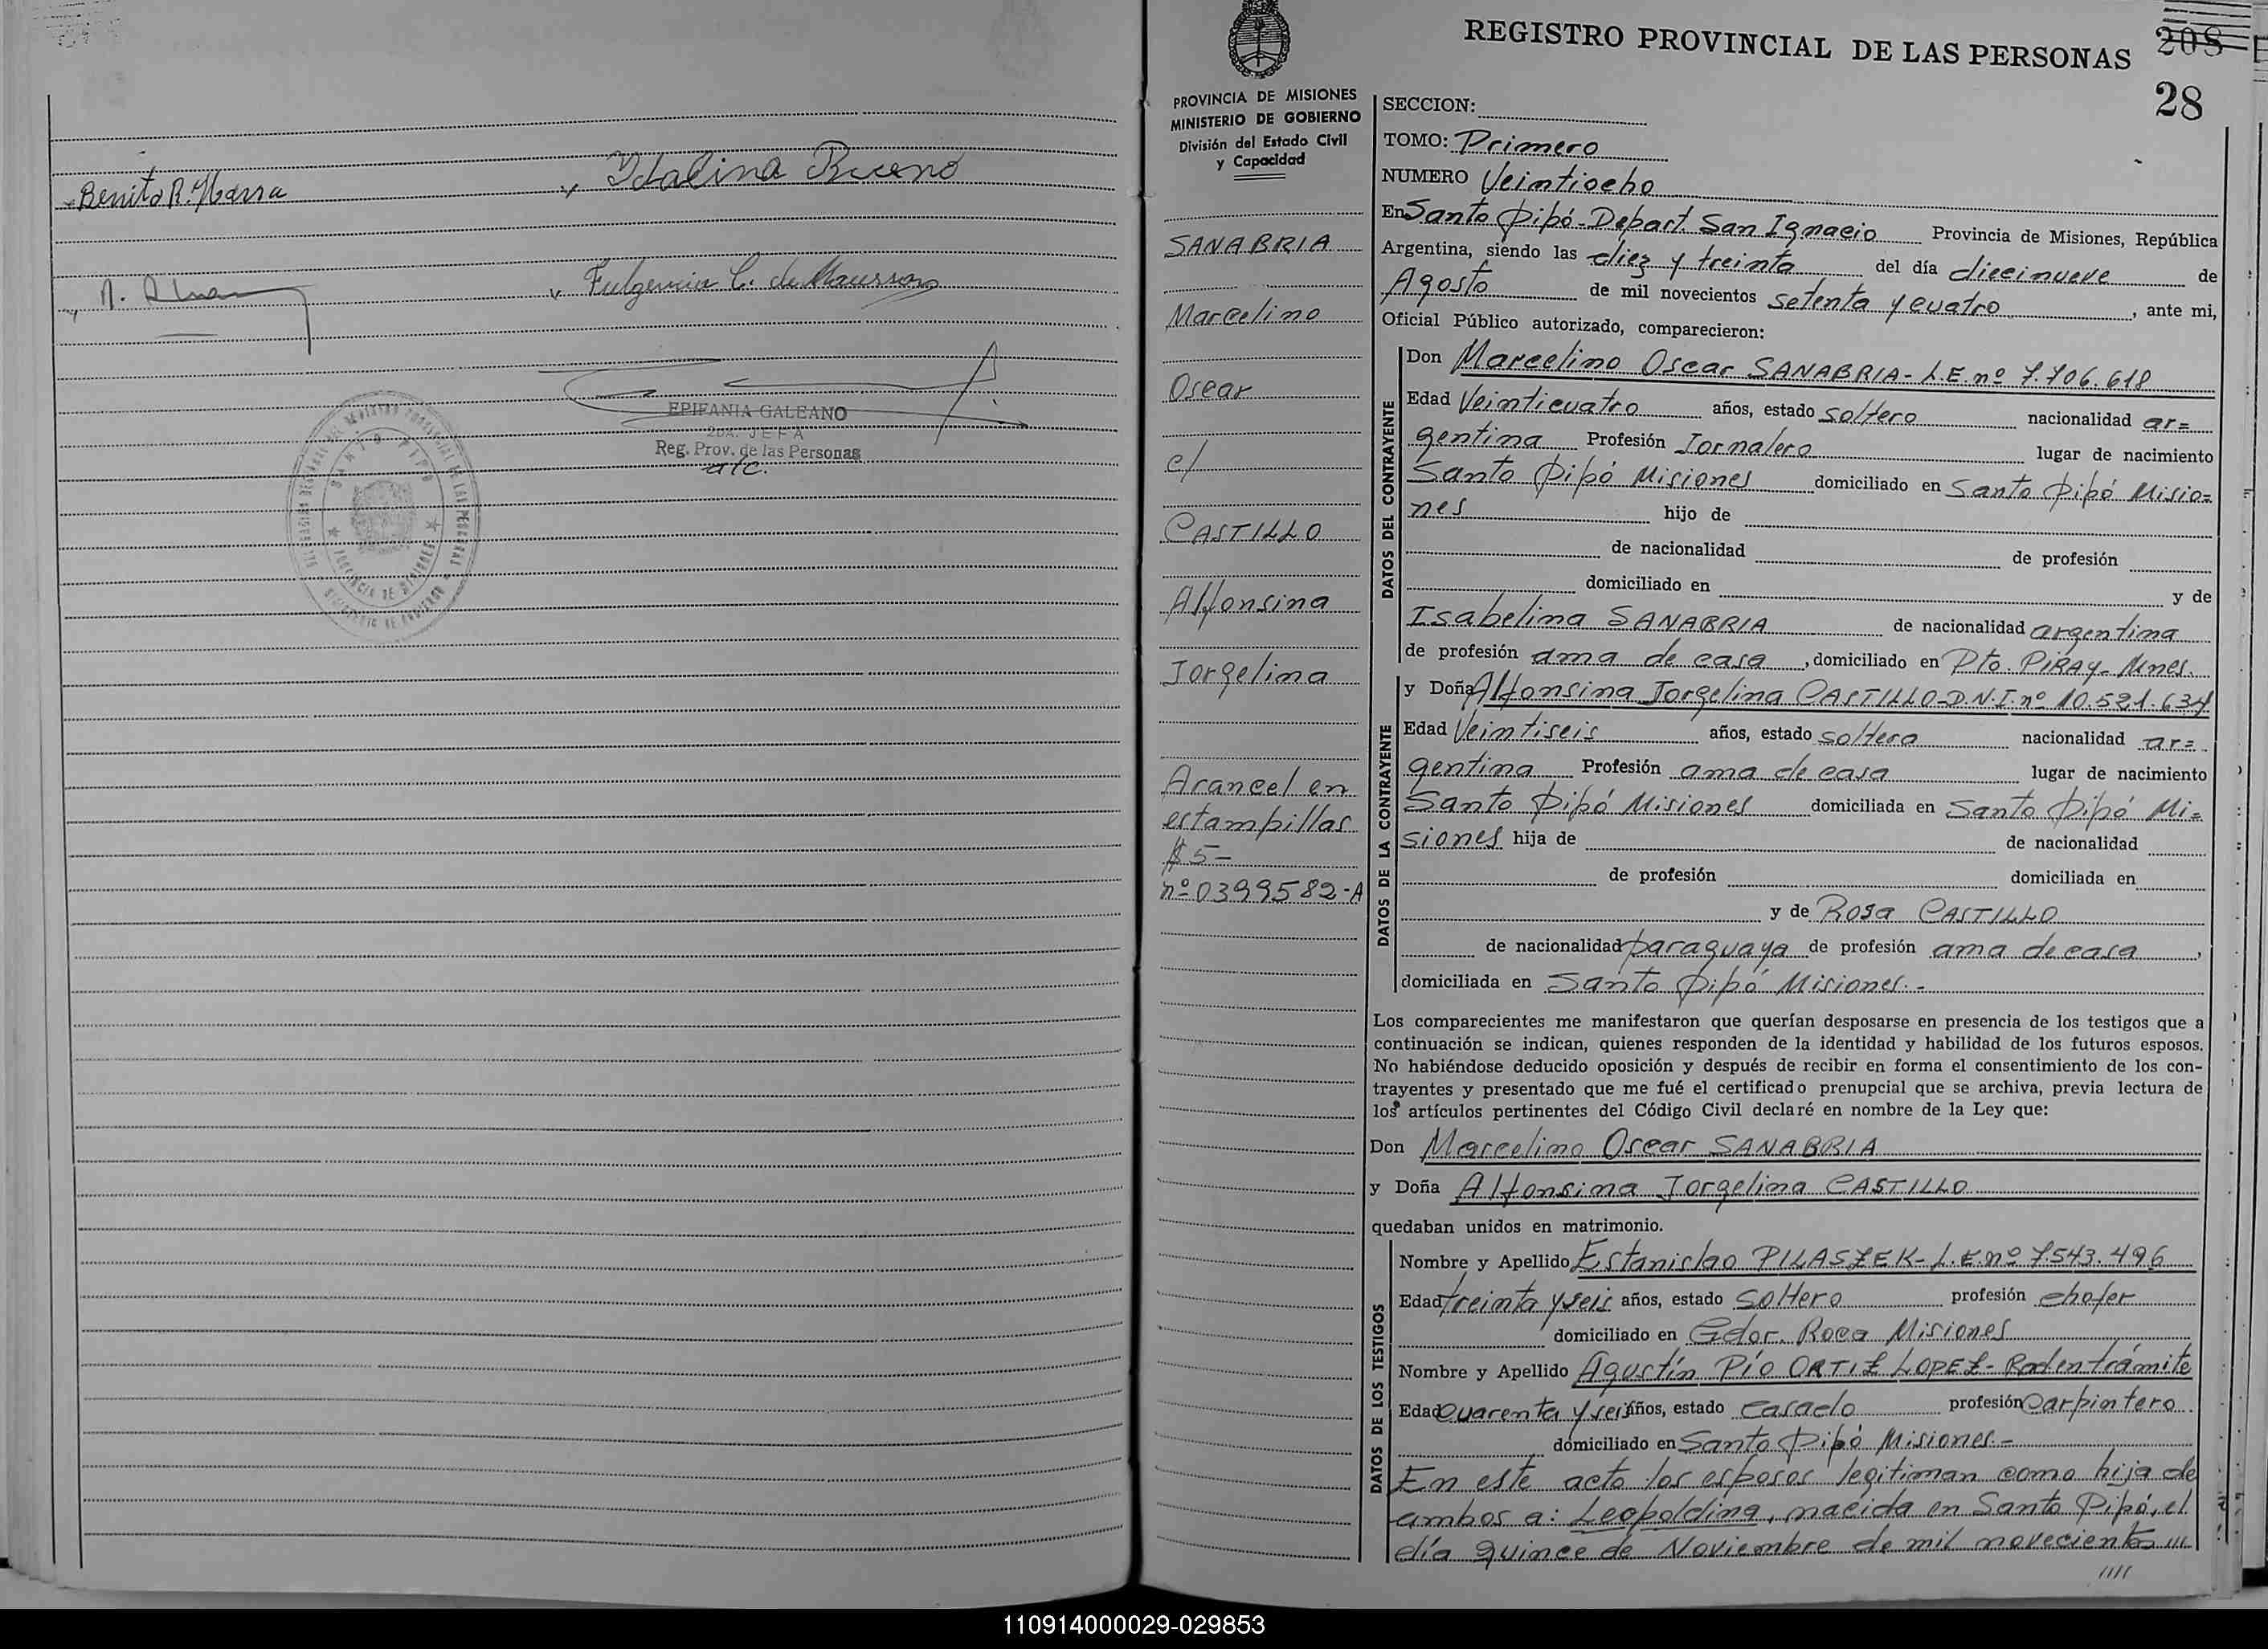 Benito R. Ybarra
Ydalina Bueno
Fulgencia C. de
EPIFANIA GALEANO
2DA. JEFA
Reg. Prov. de las Personas
SANTO PIPO
PROVINCIA DE MISIONES
REGISTRO PROVINCIAL DE LAS PERSONAS
208
28
PROVINCIA DE MISIONES
MINISTERIO DE GOBIERNO
División del Estado Civil
y Capacidad
SANABRIA
Marcelino
Oscar
c/
CASTILLO
Alfonsina
Jorgelina
Arancel en
estampillas
$ 5-
nº 0399582-A
SECCION:
TOMO: Primero
NUMERO Veintiocho
En Santo Pipó-Depart. San Ignacio Provincia de Misiones, República
Argentina, siendo las diez y treinta del día diecinueve de
Agosto de mil novecientos setenta y cuatro, ante mi,
Oficial Público autorizado, comparecieron:
DATOS DEL CONTRAYENTE
Don Marcelino Oscar SANABRIA- L.E. nº 7.706.618
Edad Veinticuatro años, estado soltero nacionalidad ar=
gentina Profesión Jornalero lugar de nacimiento
Santo Pipó Misiones domiciliado en Santo Pipó Misio=
nes hijo de
de nacionalidad de profesión
domiciliado en y de
Isabelina SANABRIA de nacionalidad argentina
de profesión ama de casa, domiciliado en Pto. PIRAY- Mnes.
DATOS DE LA CONTRAYENTE
y Doña Alfonsina Jorgelina CASTILLO-D.N.I. nº 10.521.634
Edad Veintiseis años, estado soltera nacionalidad ar=
gentina Profesión ama de casa lugar de nacimiento
Santo Pipó Misiones domiciliada en Santo Pipó Mi=
siones hija de de nacionalidad
de profesión domiciliada en
y de Rosa CASTILLO
de nacionalidad paraguaya de profesión ama de casa,
domiciliada en Santo Pipó Misiones.-
Los comparecientes me manifestaron que querían desposarse en presencia de los testigos que a
continuación se indican, quienes responden de la identidad y habilidad de los futuros esposos.
No habiéndose deducido oposición y después de recibir en forma el consentimiento de los con-
trayentes y presentado que me fué el certificado prenupcial que se archiva, previa lectura de
los artículos pertinentes del Código Civil declaré en nombre de la Ley que:
Don Marcelino Oscar SANABRIA
y Doña Alfonsina Jorgelina CASTILLO
quedaban unidos en matrimonio.
DATOS DE LOS TESTIGOS
Nombre y Apellido Estanislao PILASZEK- L.E. nº 7.543.496
Edad treinta y seis años, estado soltero profesión chofer
domiciliado en Gdor. Roca Misiones
Nombre y Apellido Agustín Pío ORTIZ LOPEZ- Rad en trámite
Edad cuarenta y seis años, estado casado profesión carpintero
domiciliado en Santo Pipó Misiones.-
En este acto los esposos legitiman como hija de
ambos a: Leopoldina, nacida en Santo Pipó, el
día quince de Noviembre de mil novecientos ///
////
110914000029-029853